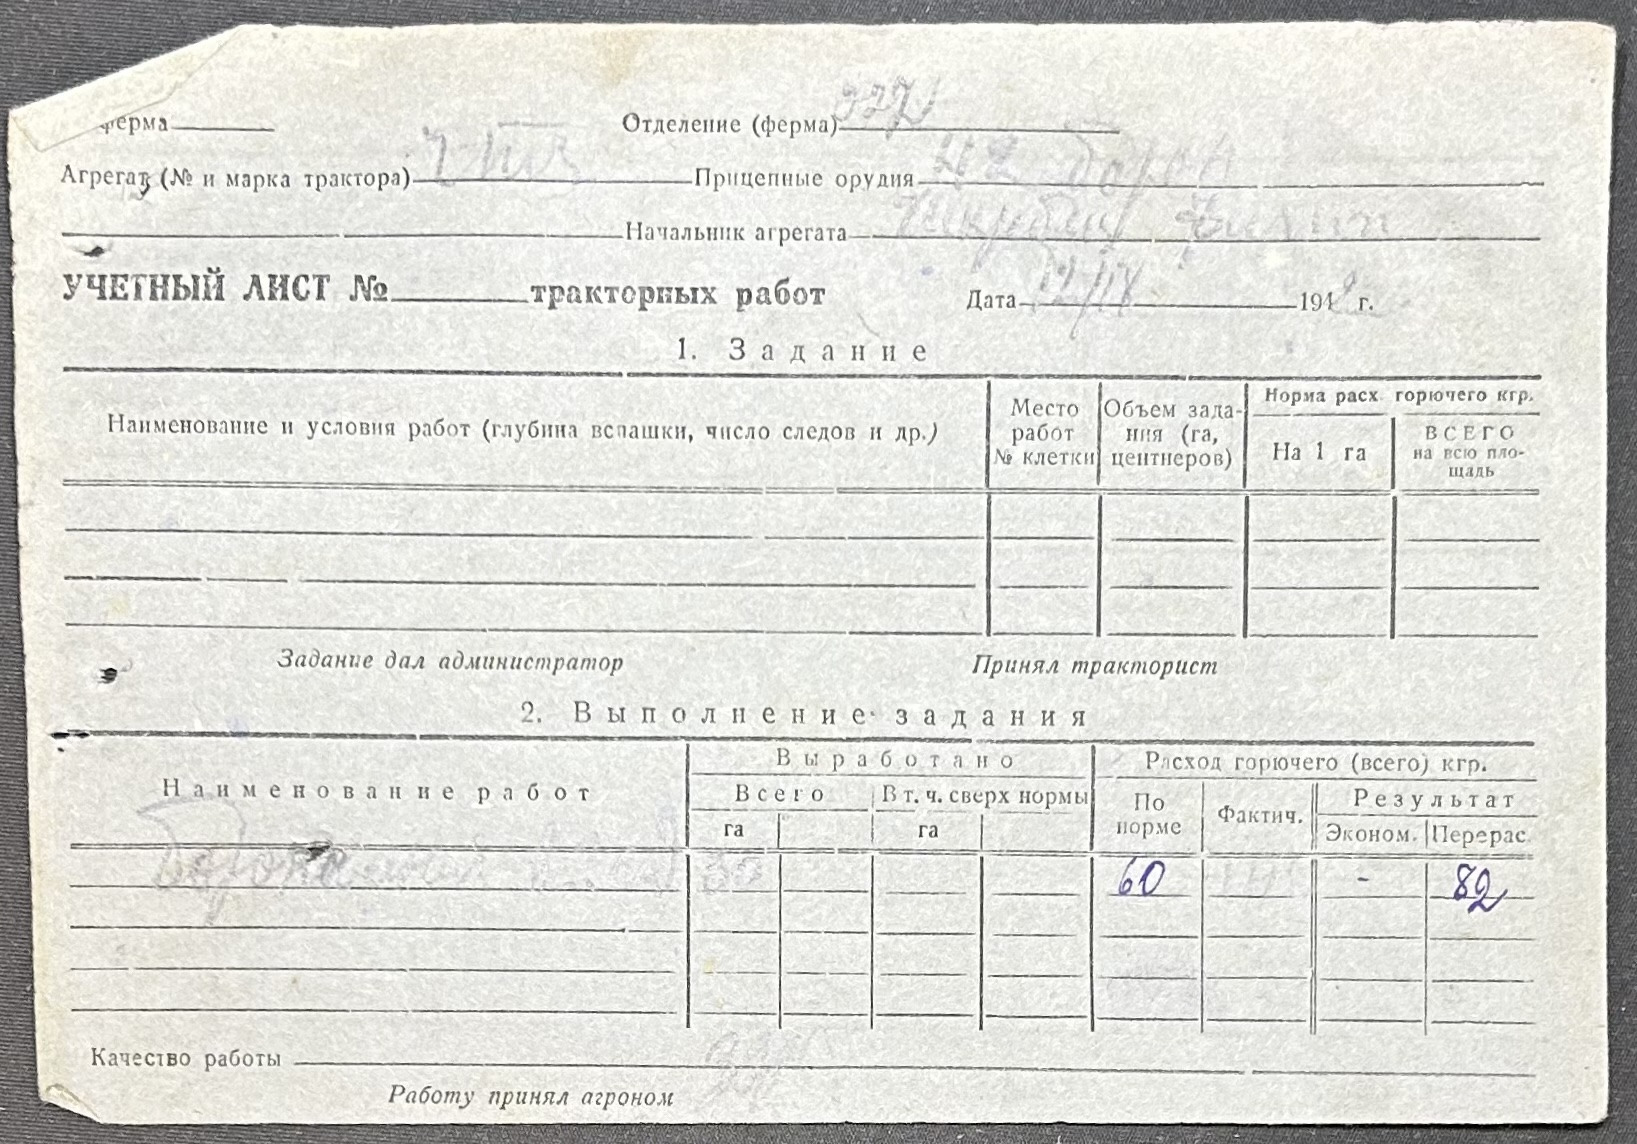 ферма Отделение (ферма) 327
Агрегат (№ и марка трактора) ЧТЗ Прицепные орудия 42 борон
Начальник агрегата
УЧЕТНЫЙ ЛИСТ № тракторных работ Дата 194 г.
1. Задание
Наименование и условия работ (глубина вспашки, число следов и др.)
Место работ № клетки
Объем зада-
ния (га,
центнеров)
Норма расх. горючего кгр.
На 1 га
ВСЕГО
на всю пло-
щадь
Задание дал администратор Принял тракторист
2. Выполнение задания
Наименование работ
Выработано
Всего В т. ч. сверх нормы
га га
Расход горючего (всего) кгр.
По
норме
Фактич.
Результат
Эконом. Перерас.
60 - 82
Качество работы
Работу принял агроном